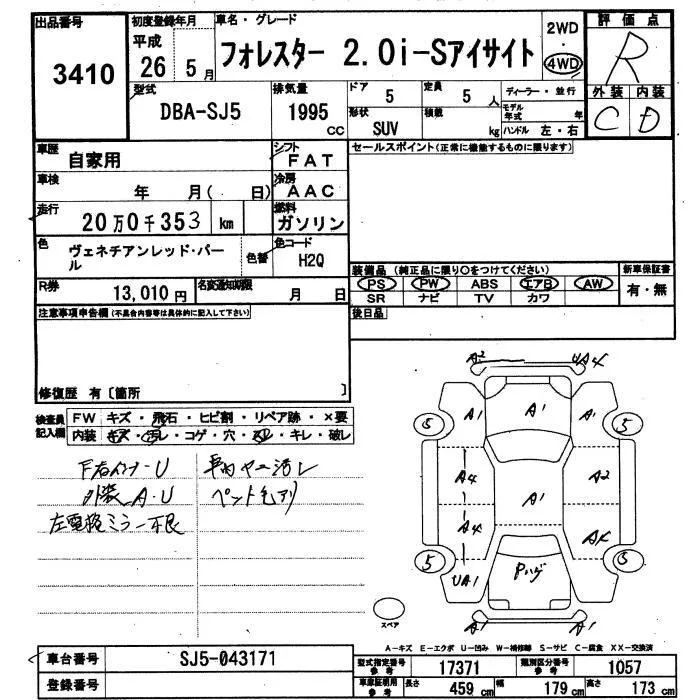 出品番号
3410
初度登録年月
平成
26 5月
車名・グレード
フォレスター 2.0i-Sアイサイト
2WD
・
4WD
評価点
R
外装 内装
C D
型式
DBA-SJ5
排気量
1995
cc
ドア
5
定員
5 人
形状
SUV
積載
kg
ディーラー・並行
モデル年式 年
ハンドル 左・右
車歴
自家用
シフト
FAT
車検
年 月( 日)
冷房
AAC
走行
20万0千353 km
燃料
ガソリン
色
ヴェネチアンレッド・パール
色替
色コード
H2Q
R券
13,010円
名変通知期限
月 日
セールスポイント(正常に機能するものに限ります)
装備品 (純正品に限り○をつけてください)
PS PW ABS エアB AW
SR ナビ TV カワ
新車保証書
有・無
後日品
注意事項申告欄(不具合内容等は具体的に記入して下さい)
修復歴 有〔箇所 〕
検査員記入欄
FW キズ・飛石・ヒビ割・リペア跡・×要
内装 キズ・汚レ・コゲ・穴・ヌレ・キレ・破レ
外装A・U
左電格ミラー不良
ペット毛アリ
A2 UA4
A1 A1 A1
5 5
A4 A2
A1
A4
5
UA1
A1 A1
スペア
A-キズ E-エクボ U-凹み W-補修跡 S-サビ C-腐食 XX-交換済
車台番号
SJ5-043171
登録番号
型式指定番号 参考
17371
類別区分番号 参考
1057
車庫証明用 参考
長さ 459 cm
幅 179 cm
高さ 173 cm